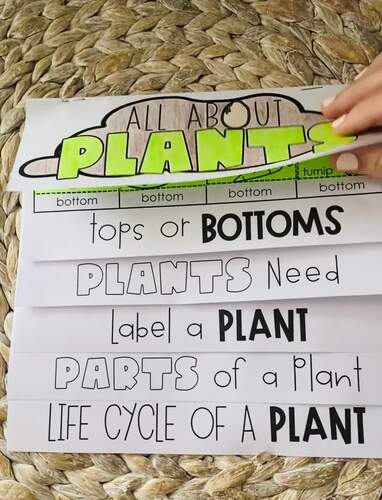 ALL ABOUT
PLANTS
turnip
bottom bottom bottom bottom
tops or BOTTOMS
PLANTS Need
Label a PLANT
PARTS of a Plant
LIFE CYCLE OF A PLANT